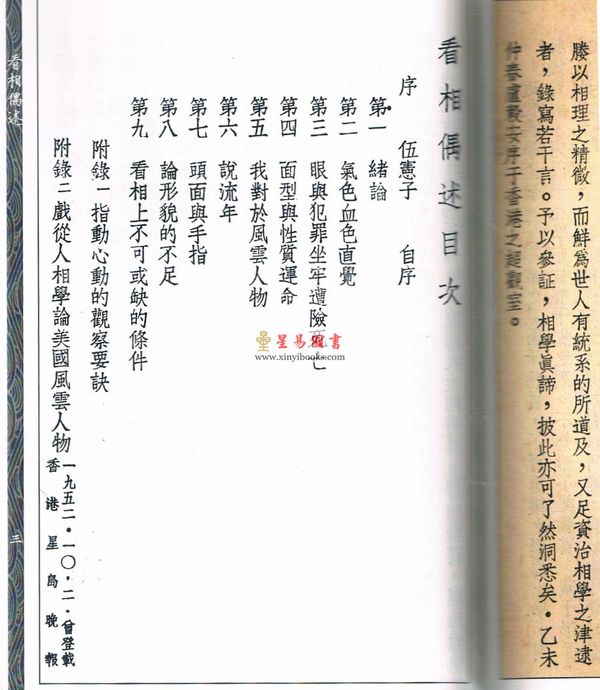 媵以相理之精微，而鮮為世人有統系的所道及，又足資治相學之津逮
者，錄寫若干言。予以參証，相學眞諦，披此亦可了然洞悉矣。乙未
仲春盧毅安序于香港之超觀室。
看相偶述目次
序　伍憲子　自序
第一　緒論
第二　氣色血色直覺
第三　眼與犯罪坐牢遭險死亡
第四　面型與性質運命
第五　我對於風雲人物
第六　說流年
第七　頭面與手指
第八　論形貌的不足
第九　看相上不可或缺的條件
附錄一 指動心動的觀察要訣
附錄二 戲從人相學論美國風雲人物
一九五二・一〇・二・曾登載
香港星島晚報
看相偶述
三
星易圖書
www.xinyibooks.com